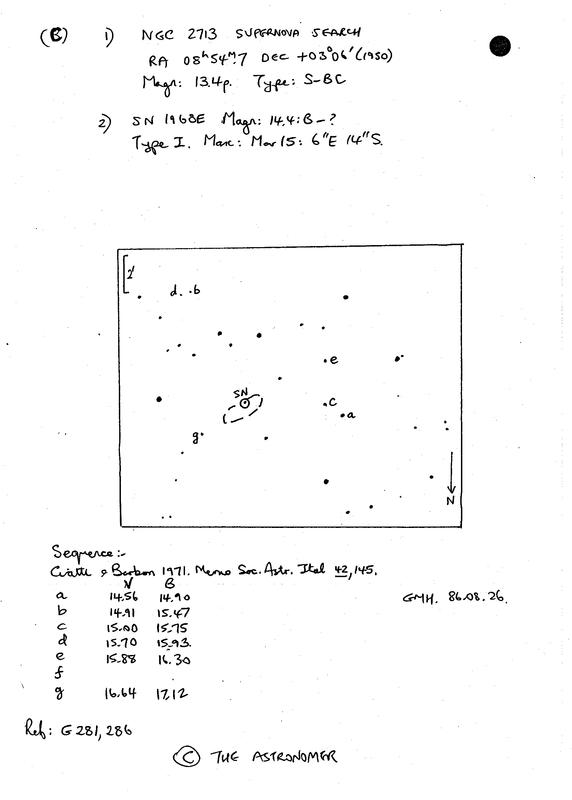 (B) 1) NGC 2713 SUPERNOVA SEARCH
RA 08h54m.7 DEC +03°06' (1950)
Magn: 13.4p. Type: S-BC
2) SN 1968E Magn: 14.4:B-?
Type I. Marc: Mar 15: 6"E 14"S.
2'
d. .b
.e
SN
.c
.a
g.
N
Sequence:-
Ciatti & Barbon 1971. Memo Soc. Astr. Ital 42, 145.
V B
a 14.56 14.90
b 14.91 15.47
c 15.00 15.75
d 15.70 15.93
e 15.88 16.30
f
g 16.64 17.12
GMH. 86.08.26.
Ref: G 281, 286
© THE ASTRONOMER